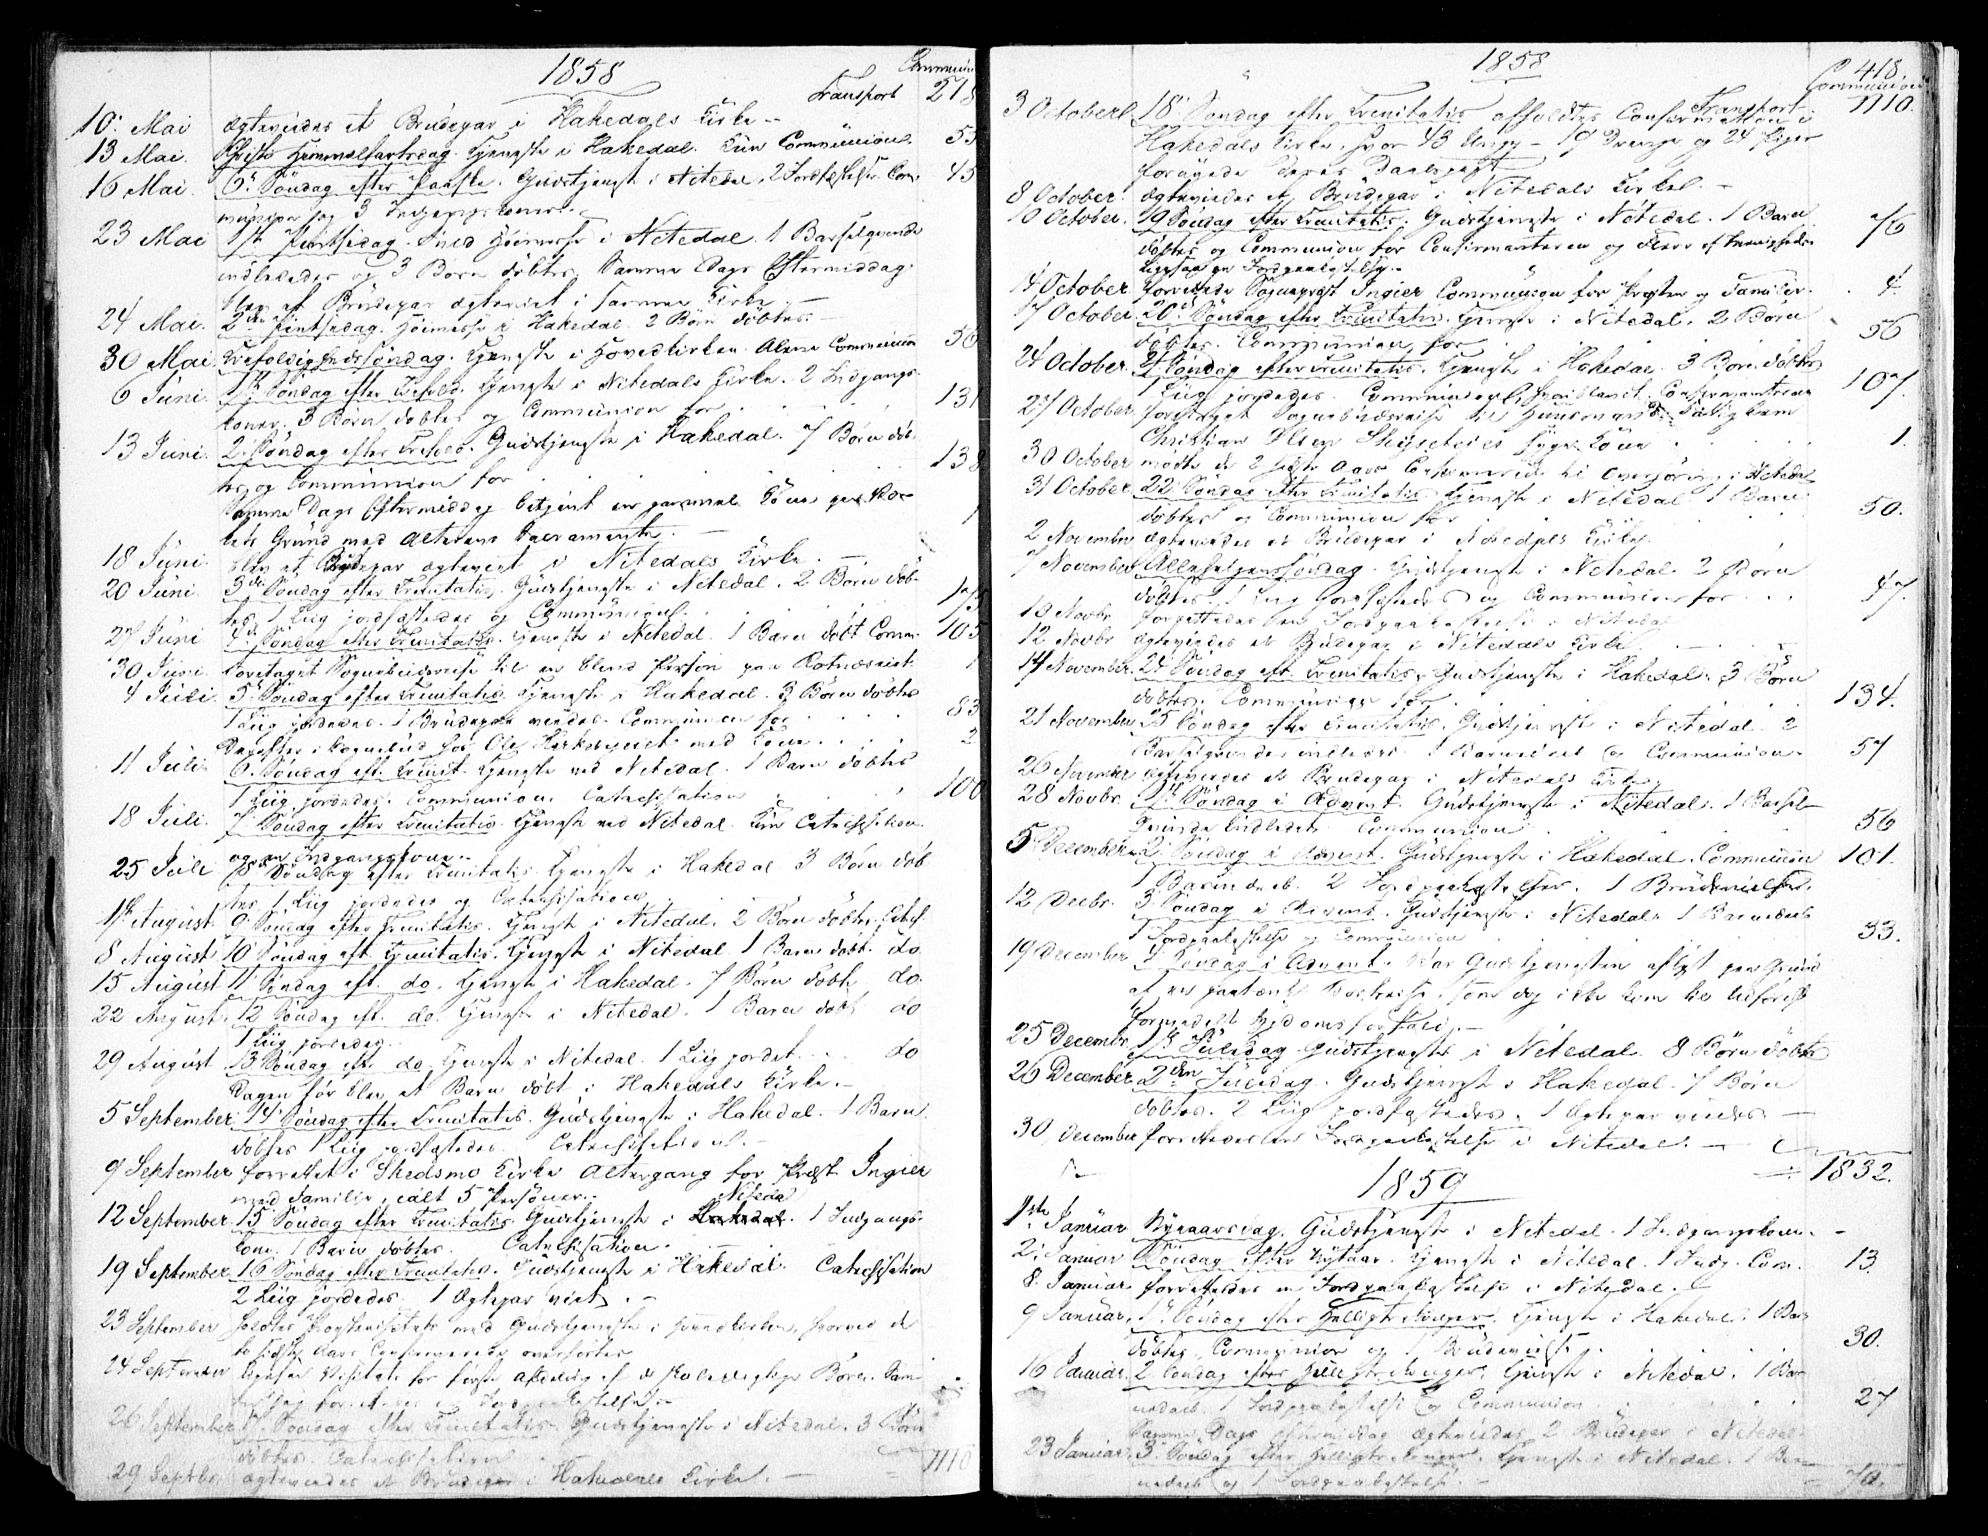 1858
Communion
Transport 218
10. Mai ægteviedes et Brudepar i Hakedals Kirke
13 Mai. Christi Himmelfartsdag. Tjeneste i Hakedal. Kun Communion. 53
16 Mai. 6. Söndag efter Paaske. Gudstjeneste i Nitedal, 2 Jordfæstelser Com- 45
munion og 3 Indgangskoner.
23 Mai 1ste Pintsedag. Höimesse i Nitedal. 1 Barselqvinde
indlededes og 3 Börn döbtes. Samme Dags Eftermiddag
blev et Brudepar ægteviet i samme Kirke.
24 Mai. 2den Pintsedag. Höimesse i Hakedal. 2 Börn döbtes.
30 Mai Trefoldighedssöndag. Tjeneste i Hovedkirken. Alene Communion 56
6 Juni. 1ste Söndag efter Trefold. Tjeneste i Nitedals Kirke. 2 Indgangs-
koner. 3 Börn döbtes og Communion for 131
13 Juni. 2. Söndag efter Trefold. Gudstjeneste i Hakedal. 7 Börn döb-
tes og Communion for 138
Samme Dags Eftermiddag betjent en gammel Kone paa
Grund med Alterens Sacramente. 1
18 Juni. blev et Brudepar ægteviet i Nitedals Kirke.
20 Juni. 3die Söndag efter Trinitatis. Gudstjeneste i Nitedal. 2 Börn döb-
tes 1 Liig jordfæstedes og Communion.
27 Juni 4de Söndag efter Trinitatis. Tjeneste i Nitedal. 1 Barn döbt Comm. 105
30 Juni. foretaget Sognebudsreise til en blind Person paa Rotnæseiet 1
4 Juli. 5. Söndag efter Trinitatis. Tjeneste i Hakedal. 3 Börn döbtes
1 Liig jordedes. 1 Brudepar viedes. Communion for 83
Derefter i Sognebud for Ole med Kone 2
11 Juli. 6. Söndag eft. Trinit. Tjeneste ved Nitedal. 1 Barn döbtes
1 Liig jordedes. Communion. Catechisation 100
18 Juli. 7. Söndag efter Trinitatis. Tjeneste ved Nitedal. Kun Catechisation
og en Indgangskone.
25 Juli 8de Söndag efter Trinitatis. Tjeneste i Hakedal 3 Börn döb
tes 1 Liig jordedes og Catechisation
1ste August. 9. Söndag efter Trinitatis. Tjeneste i Nitedal. 2 Börn döbtes. Catech.
8 August 10 Söndag eft. Trinitatis. Tjeneste i Nitedal 1 Barn döbt. do
15 August 11 Söndag eft. do. Tjeneste i Hakedal. 7 Börn döbt. do.
22 August. 12 Söndag eft. do. Tjeneste i Nitedal. 1 Barn döbt do
1 Liig jordedes.
29 August 13 Söndag eft. do Tjeneste i Nitedal. 1 Liig jordet. do
Dagen för blev et Barn döbt i Hakedals Kirke.
5 September. 14 Söndag efter Trinitatis. Gudstjeneste i Hakedal. 1 Barn
döbtes 1 Liig jordfæstedes. Catechisation.
9 September forrettet i Skedsmo Kirke Altergang for Præst Ingier
med Familie, ialt 5 Personer.
12 September. 15 Söndag efter Trinitatis Gudstjeneste i Hakedal Nitedal. 1 Indgangs-
kone. 1 Barn döbtes. Catechisation.
19 September. 16 Söndag efter Trinitatis. Gudstjeneste i Hakedal. Catechisation
2 Liig jordedes. 1 Ægtepar viet.
23 September holdtes Provstevisitats med Gudstjeneste i Hovedkirken, hvorved de
to sidste Aars Confirmerede overhörtes
24 September Visitats for förste Afdeling af de Skolepligtige Börn. Sam-
26 September 17. Söndag efter Trinitatis. Gudstjeneste i Nitedal. 3 Börn
döbtes. Catechisation
29 Septbr. ægteviedes et Brudepar i Hakedals Kirke. 1110
1858
418.
Communion
Transport 1110.
3 October 18. Söndag efter Trinitatis afholdtes Confirmation i
Hakedals Kirke, hvor 43 Unge - 19 Drenge og 24 Piger
fornyede deres Daabspagt
8 October. ægteviedes et Brudepar i Nitedals Kirke.
10 October. 19 Söndag efter Trinitatis. Gudstjeneste i Nitedal. 1 Barn
döbtes og Communion for Confirmanterne og Flere af Menigheden 76
ligesaa en Jordpaakastelse.
14 October forrettede Sognepræst Ingier Communion for Præsten og Familie. 4.
17 October. 20de Söndag efter Trinitatis. Tjeneste i Nitedal. 2 Börn
döbtes. Communion for 56
24 October. 21 Söndag efter Trinitatis. Tjeneste i Hakedal. 3 Börn döbtes
1 Liig jordedes. Communion, hvoriblandt Confirmanterne 107.
27 October foretaget Sognebudsreise til Huusmand
Christian Olsen syge Kone 1.
30 October mödte de 2 sidste Aars Confirmerede til Overhöring i Nitedal
31 October. 22 Söndag efter Trinitatis Tjeneste i Nitedal 1 Barn
döbtes og Communion for 50.
2 November ægteviedes et Brudepar i Nitedals Kirke.
7 November Allehelgenssöndag. Gudstjeneste i Nitedal. 2 Börn
döbtes. 1 Liig jordfæstedes og Communion for 47.
10 Novbr forrettedes en Jordpaakastelse i Nitedal
12 Novbr ægteviedes et Brudepar i Nitedals Kirke.
14 November. 24 Söndag eft. Trinitatis. Gudstjeneste i Hakedal. 3 Börn
döbtes. Communion for 134.
21 November 25 Söndag efter Trinitatis. Gudstjeneste i Nitedal. 2
Barselqvinder indledes. 1 Barnedaab og Communion. 57
26 November ægteviedes et Brudepar i Nitedals Kirke.
28 Novbr. 1ste Söndag i Advent. Gudstjeneste i Nitedal. 1 Barsel-
qvinde Indledet. Communion 56
5 December. 2. Söndag i Advent. Gudstjeneste i Hakedal. Communion 101.
1 Barnedaab. 2 Jordpaakastelser. 1 Brudevielse.
12 Decbr. 3 Söndag i Advent. Gudstjeneste i Nitedal. 1 Barnedaab
1 Jordpaakastelse og Communion 33.
19 December 4 Söndag i Advent. Var Gudstjenesten aflyst paa Grund
af en paatænkt som dog ikke kom til Udförelse
formedelst Sygdomsforfald.
25 Decembr. 1ste Juledag Gudstjeneste i Nitedal. 8 Börn döbtes
26 December 2den Juledag. Gudstjeneste i Hakedal. 7 Börn
döbtes. 2 Liig jordfæstedes. 1 Ægtepar viedes.
30 December forrettedes en Jordpaakastelse i Nitedal.
1832.
1859
1ste Januar Nytaarsdag. Gudstjeneste i Nitedal. 1 Indgangskone.
2. Januar Söndag efter Nytaar. Tjeneste i Nitedal. 1 Indg. Com. 13.
8. Januar forrettedes en Jordpaakastelse i Nitedal.
9 Januar. 1ste Söndag efter Helligtrekonger. Tjeneste i Hakedal. 1 Barn
döbtes. Communion og 1 Brudevielse. 30.
16 Januar. 2 Söndag efter Helligtrekonger. Tjeneste i Nitedal. 1 Bar-
nedaab. 1 Jordpaakastelse og Communion 27
Samme Dags Eftermiddag ægteviedes 2 Brudepar i Nitedal.
23 Januar. 3. Söndag efter Helligtrekonger. Tjeneste i Nitedal. 1 Bar-
nedaab og 1 Jordpaakastelse. 70.